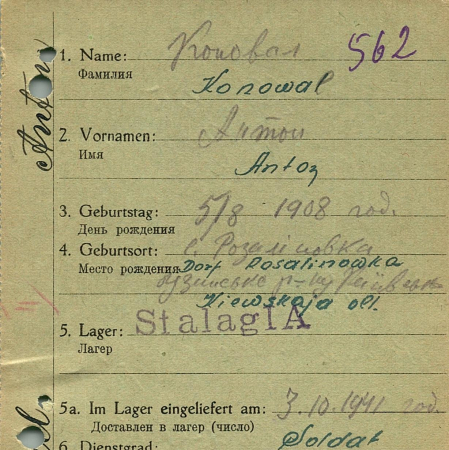 1. Name: Коновал 562
Фамилия
Konowal
2. Vornamen: Антон
Имя
Anton
3. Geburtstag: 5/8 1908 год.
День рождения
4. Geburtsort: с. Розалиновка
Место рождения Dorf Rosalinowka
р-ну
Kiewskaja obl.
5. Lager: Stalag IA
Лагерь
5a. Im Lager eingeliefert am: 3.10.1941 год.
Доставлен в лагерь (число)
6. Dienstgrad: Soldat
Anton